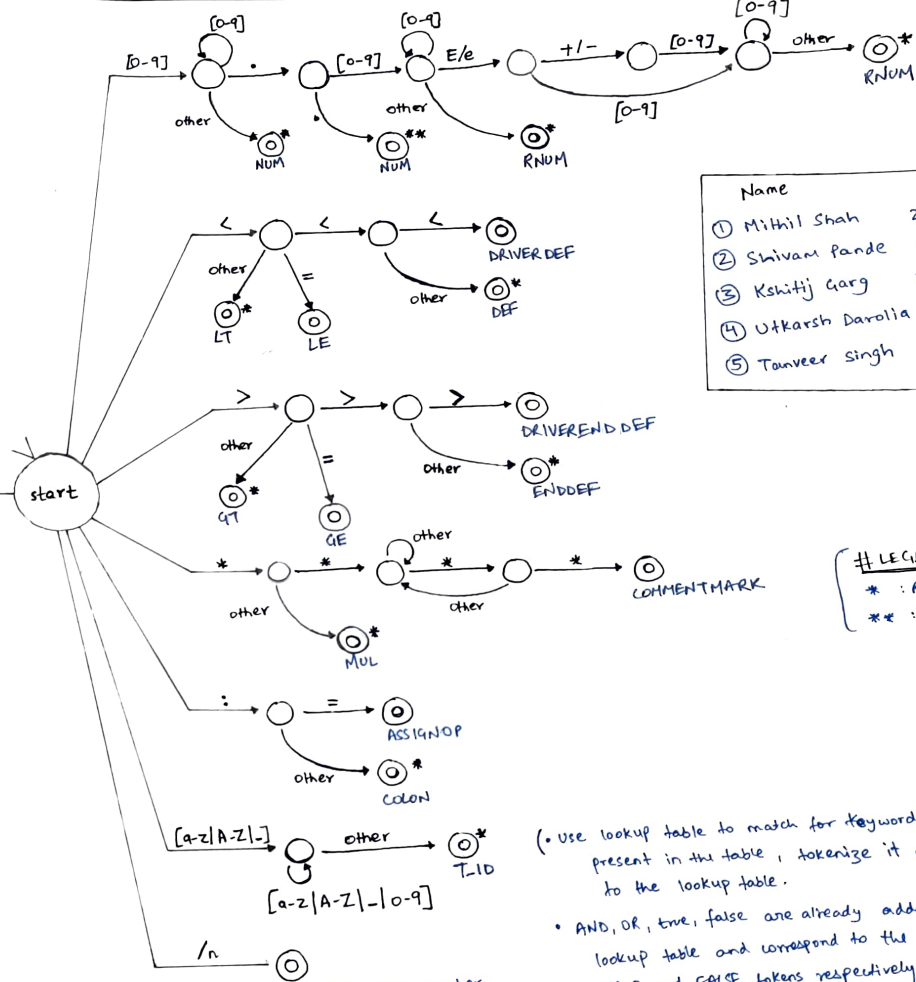 [0-9]
[0-9]
.
[0-9]
[0-9]
E/e
+/-
[0-9]
[0-9]
other
*
RNUM
[0-9]
other
*
NUM
.
**
NUM
other
*
RNUM
<
<
<
DRIVERDEF
other
*
LT
=
LE
other
*
DEF
Name
① Mithil Shah
② Shivam Pande
③ Kshitij Garg
④ Utkarsh Darolia
⑤ Tanveer Singh
>
>
>
DRIVERENDDEF
other
*
GT
=
GE
other
*
ENDDEF
start
*
*
other
*
*
COMMENTMARK
other
other
*
MUL
# LEG
* :
** :
:
=
ASSIGNOP
other
*
COLON
[a-z|A-Z|_]
other
*
T_ID
[a-z|A-Z|_|0-9]
/n
(• Use lookup table to match for keyword
present in the table, tokenize it
to the lookup table.
• AND, OR, true, false are already add
lookup table and correspond to the
FALSE tokens respectively